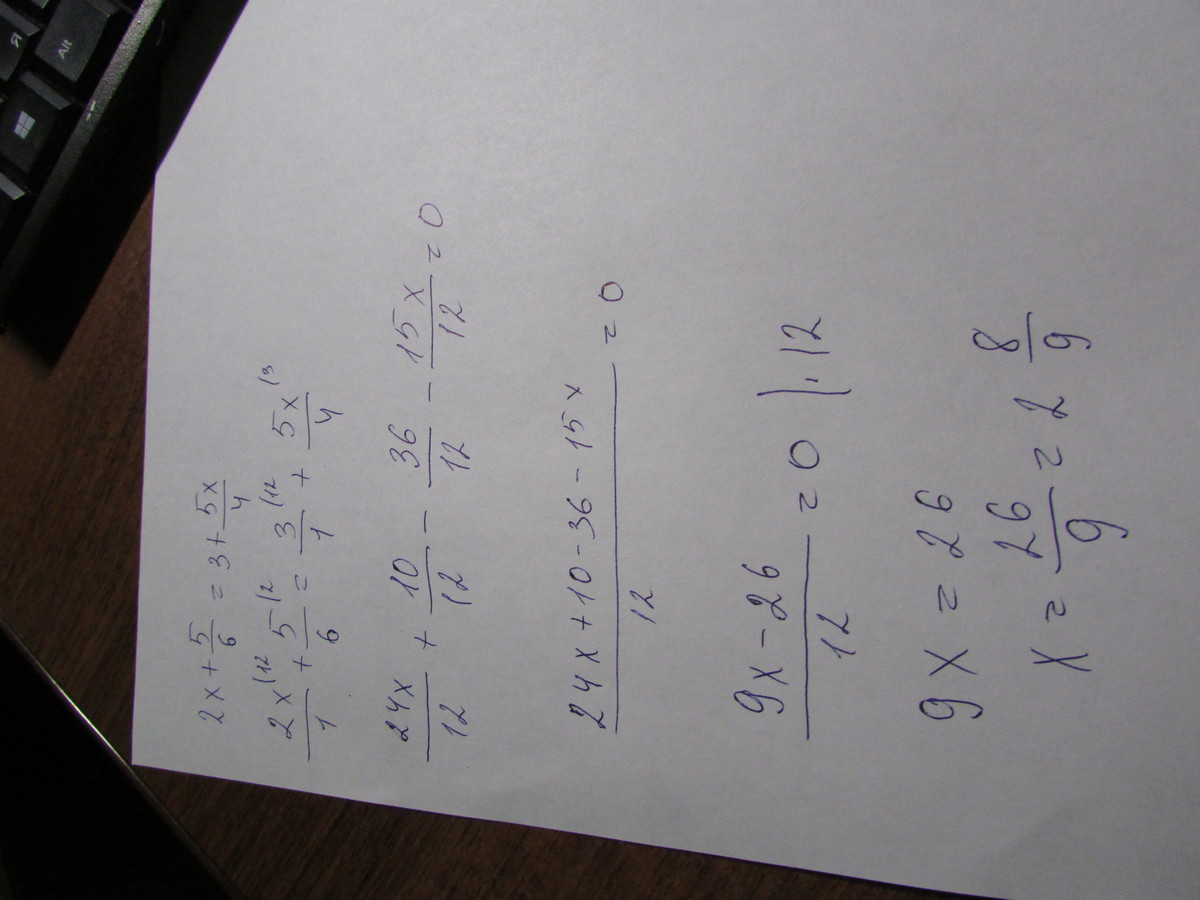 2x + 5/6 = 3 + 5x/4
2x⁽¹²/1 + 5⁽²/6 = 3⁽¹²/1 + 5x⁽³/4
24x/12 + 10/12 - 36/12 - 15x/12 = 0
24x + 10 - 36 - 15x/12 = 0
9x - 26/12 = 0 | · 12
9x = 26
x = 26/9 = 2 8/9
Я
Alt